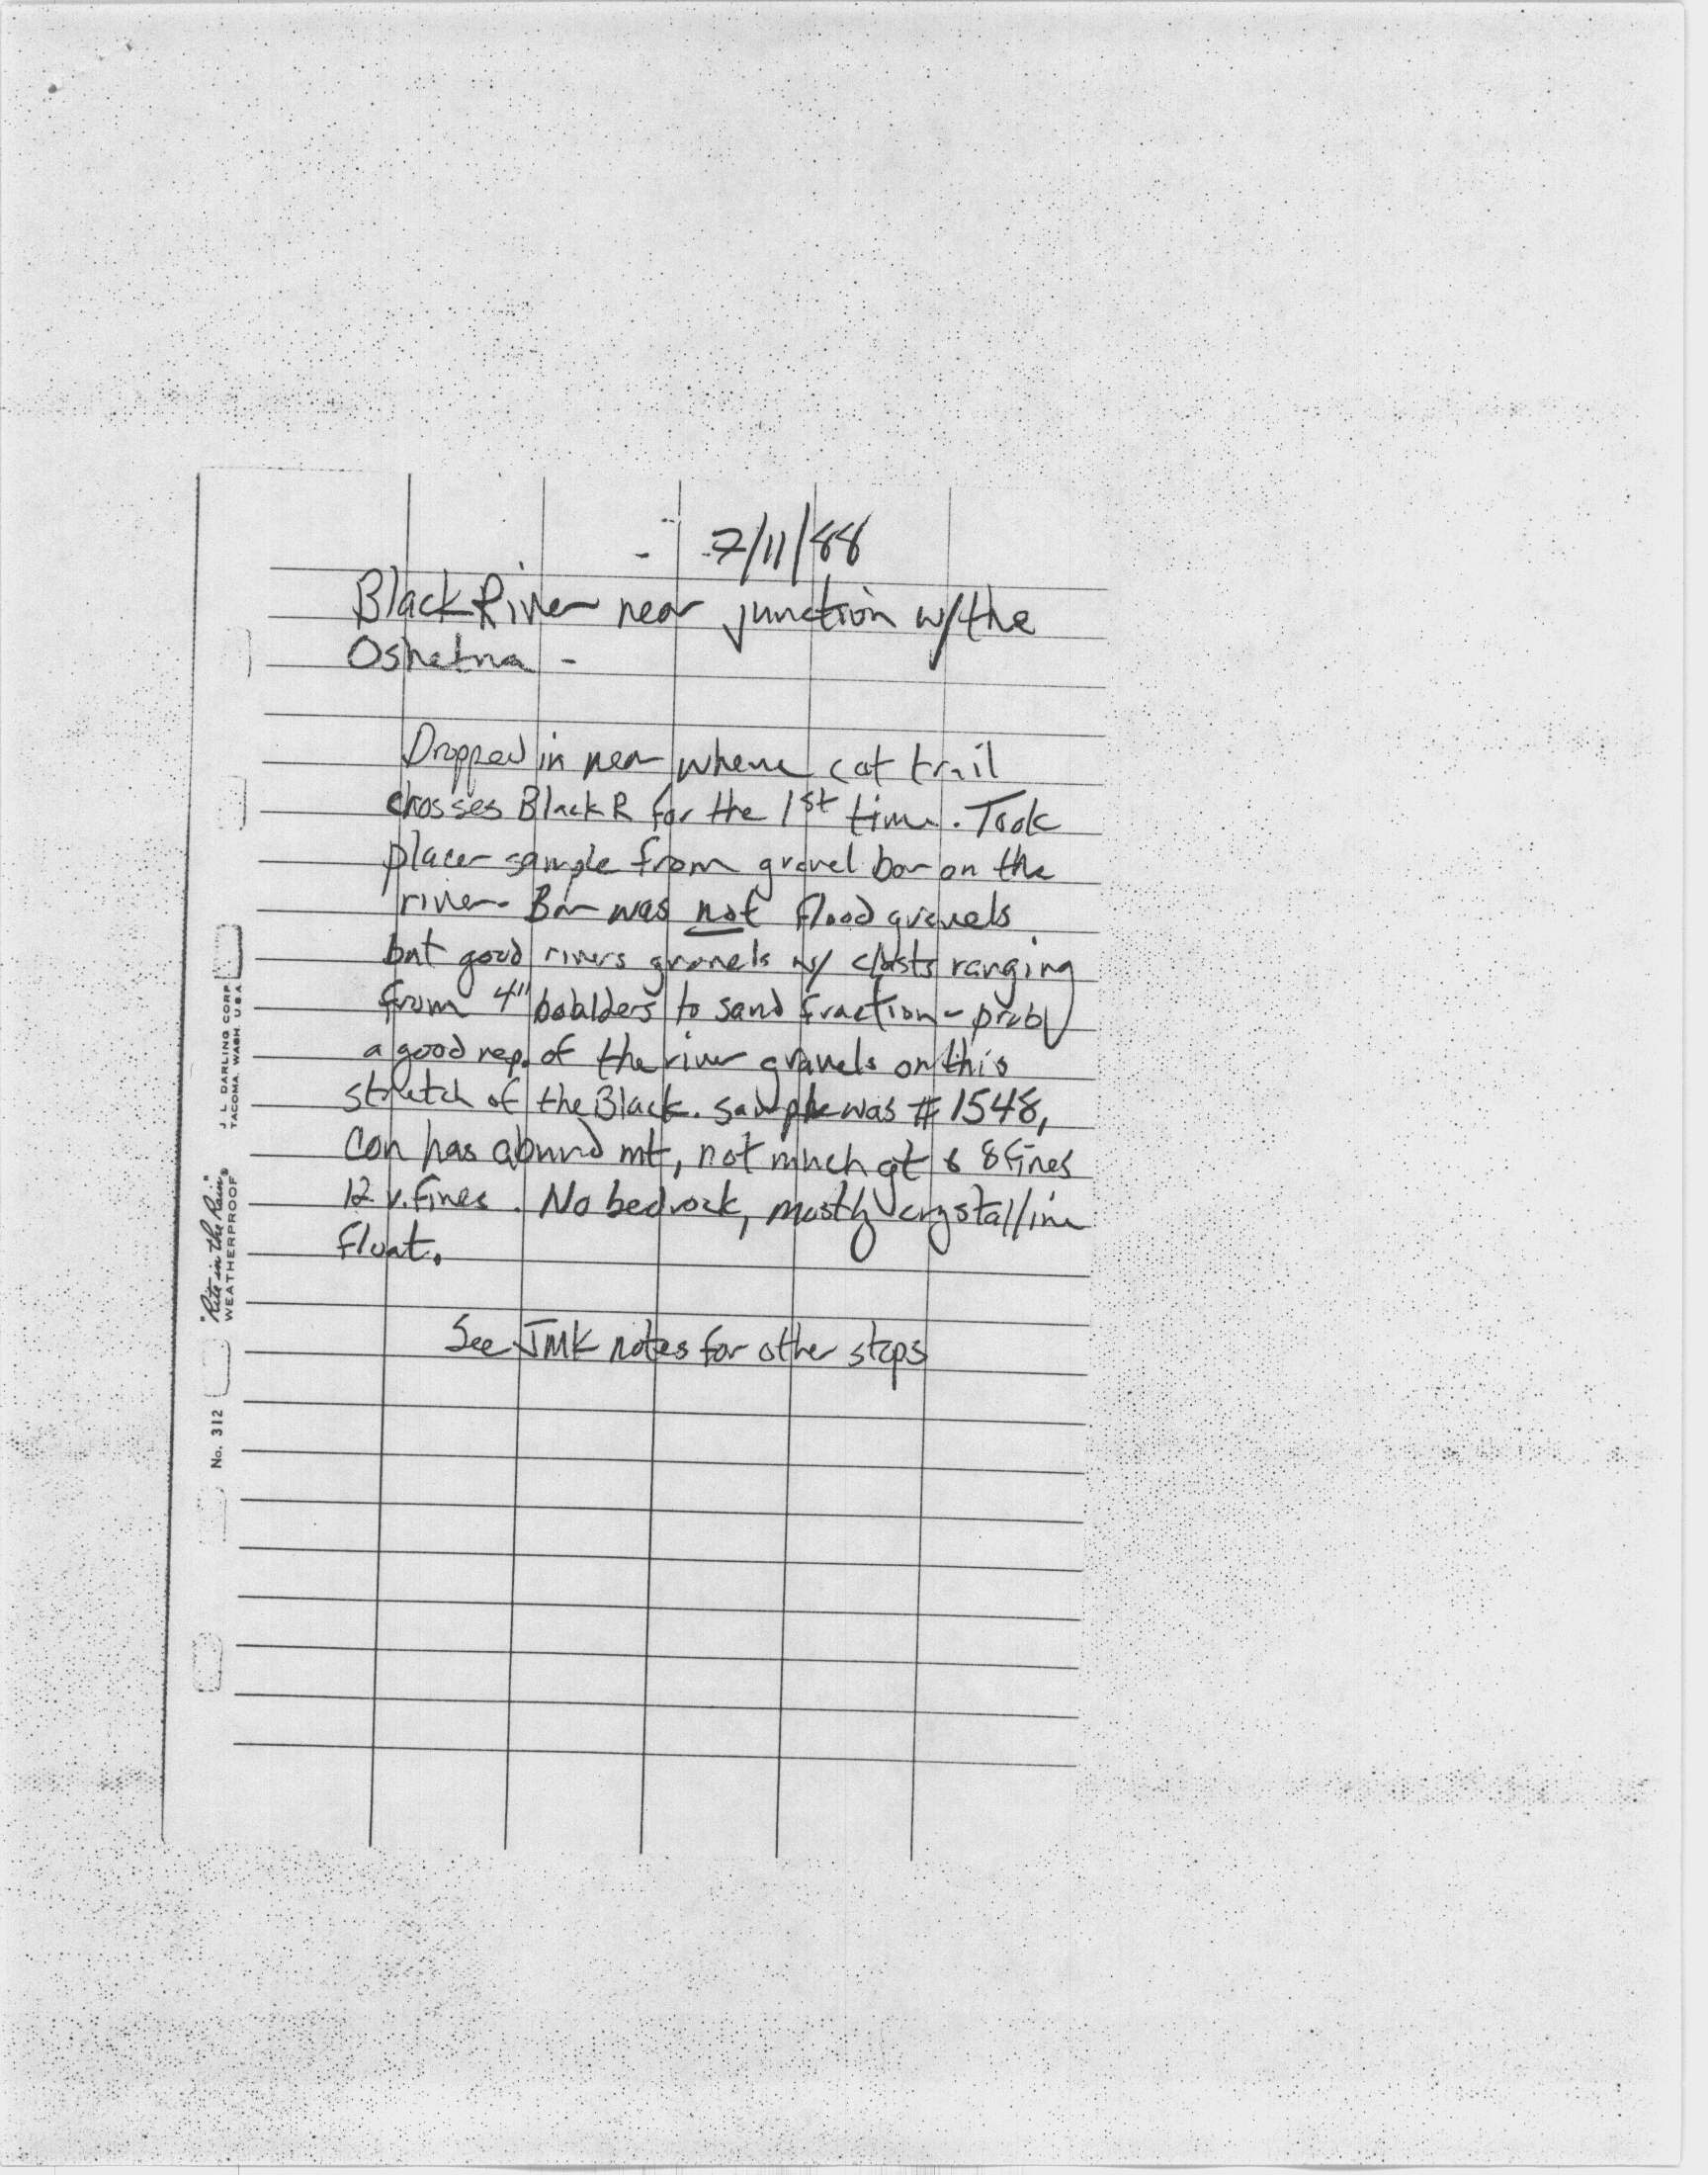 7/11/88
Black River near junction w/the
Oshetna -
Dropped in near where cat trail
crosses Black R for the 1st time. Took
placer sample from gravel bar on the
river. Bar was not flood gravels
but good rivers gravels w/ clasts ranging
from 4" boulders to sand fraction - probly
a good rep. of the river gravels on this
stretch of the Black. sample was # 1548,
Con has abund mt, not much gt & 8 fines
12 v. fines. No bedrock, mostly crystalline
float.
See JMK notes for other stops
J. L. DARLING CORP.
TACOMA, WASH. U.S.A.
"Rite in the Rain"
WEATHERPROOF
No. 312